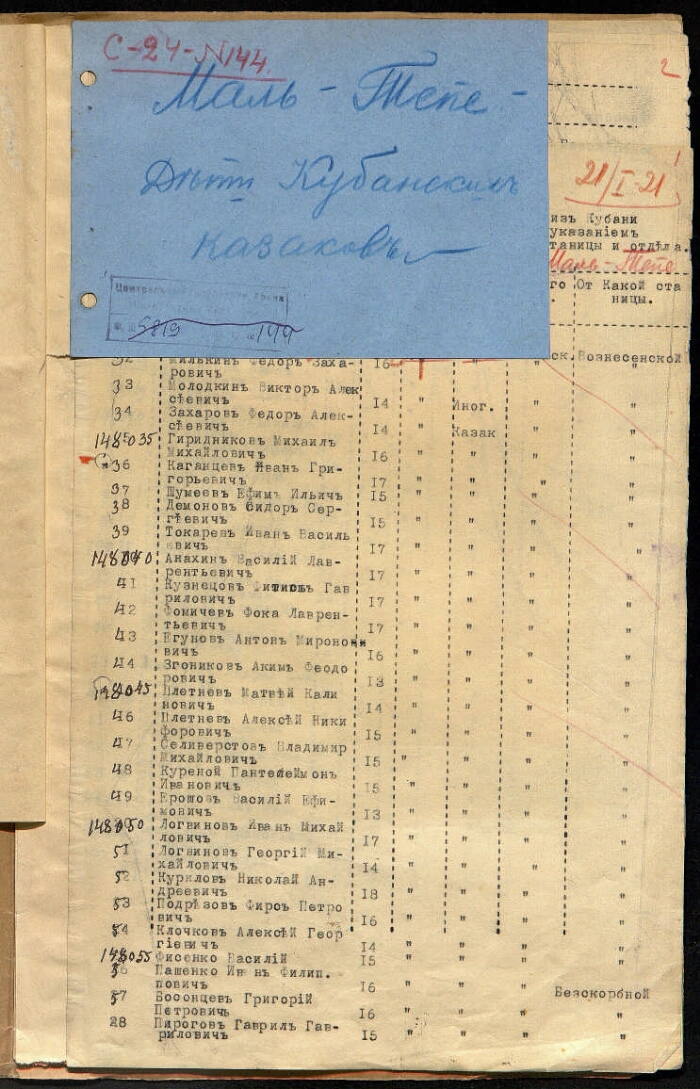 С-24-N144
2
Маль-Тепе-
Дѣти Кубанскихъ
казаковъ
21/I-21
изъ Кубани
указаніемъ
таницы и отдѣла.
Маль-Тепе
го От Какой ста
ницы.
5819 144
32 Милькин Федор Заха- 16 " " " ск. Вознесенской
ровичъ "
33 Молодкин Виктор Алек
сѣевичъ 14 " Иног. " "
34 Захаров Федор Алек-
сѣевичъ 14 " Казак " "
148035 Гиридников Михаил
Михайловичъ 16 " " " "
36 Каганцев Иван Гри-
горьевичъ 17 " " " "
37 Шумеевъ Ефим Ильич 15 " " " "
38 Демонов Сидор Сер-
гѣевич 15 " " " "
39 Токарев Иван Василь
евич 17 " " " "
148040 Анахин Василій Лав-
рентьевич 17 " " " "
41 Кузнецов Гав
рилович 17 " " " "
42 Фомичев Фока Лаврен-
тьевич 17 " " " "
43 Егунов Антон Миронови
вич 16 " " " "
44 Згониковъ Аким Феодо
рович 13 " " " "
148045 Плетнев Матвѣй Кали
нович 14 " " " "
46 Плетнев Алексѣй Ники
форович 15 " " " "
47 Селиверстов Владимир
Михайлович 15 " " " "
48 Куреной Пантелеймон
Иванович 15 " " " "
49 Ерошов Василій Ефи-
мович 13 " " " "
148050 Логвинов Иван Михай
лович 17 " " " "
51 Логвинов Георгій Ми-
хайлович 14 " " " "
52 Курилов Николай Ан-
дреевич 18 " " " "
53 Подрѣзов Фирс Петро
вич 16 " " " "
54 Клочков Алексѣй Геор
гіевич 14 " " " "
148055 Фисенко Василій 15 " " " "
56 Пашенко Ив нъ Филип.
пович 16 " " " Безскорбной
57 Босонцев Григорій
Петрович 16 " " " "
28 Пирогов Гаврил Гав-
рилович 15 " " " "